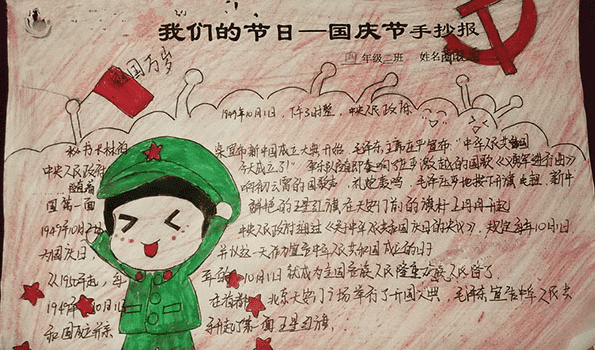 我们的节日—国庆节手抄报
四年级二班 姓名
国万岁
1949年10月1日，下午3时整，中央人民政府
秘书长林伯
宣布新中国成立大典开始，毛泽东主席庄严宣布"中华人民共和国
中央人民政府
今天成立了！"军乐队随即奏响了 激越的国歌《义勇军进行曲》
随着
响彻云霄的国歌声，礼炮轰鸣，毛泽东 地按下升旗 钮，新中
国第一面
鲜艳的五星红旗在天安门前的旗杆上冉冉升起
中央人民政府通过《关于中华人民共和国国庆日的决议》，规定每年10月1日
为国庆日，
并以这一天作为宣告中华人民共和国成立的日
从1950年起，每
年的10月1日就成为全国各族人民隆重欢庆人民节了
1949年10月1日
在首都北京天安门广场举行了开国大典，毛泽东宣告中华人民共
和国成立并亲
手升起了第一面五星红旗。